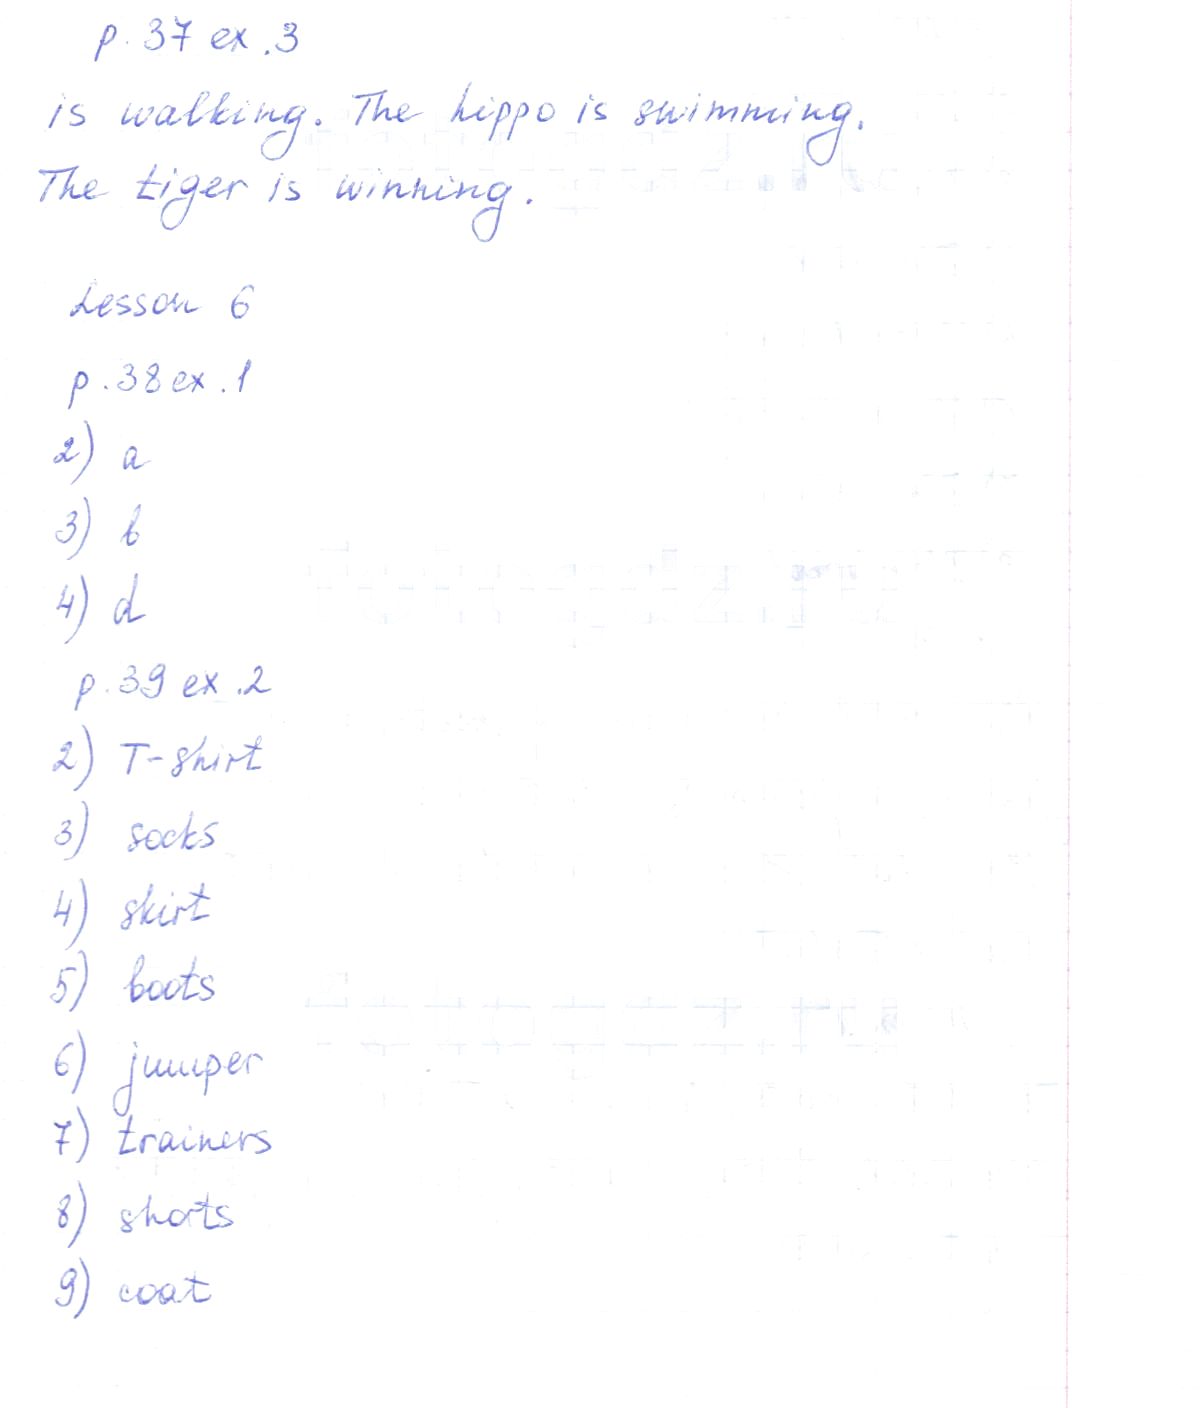 p. 37 ex. 3
is walking. The hippo is swimming.
The tiger is winning.
Lesson 6
p. 38 ex. 1
2) a
3) b
4) d
p. 39 ex. 2
2) T-shirt
3) socks
4) skirt
5) boots
6) jumper
7) trainers
8) shorts
9) coat